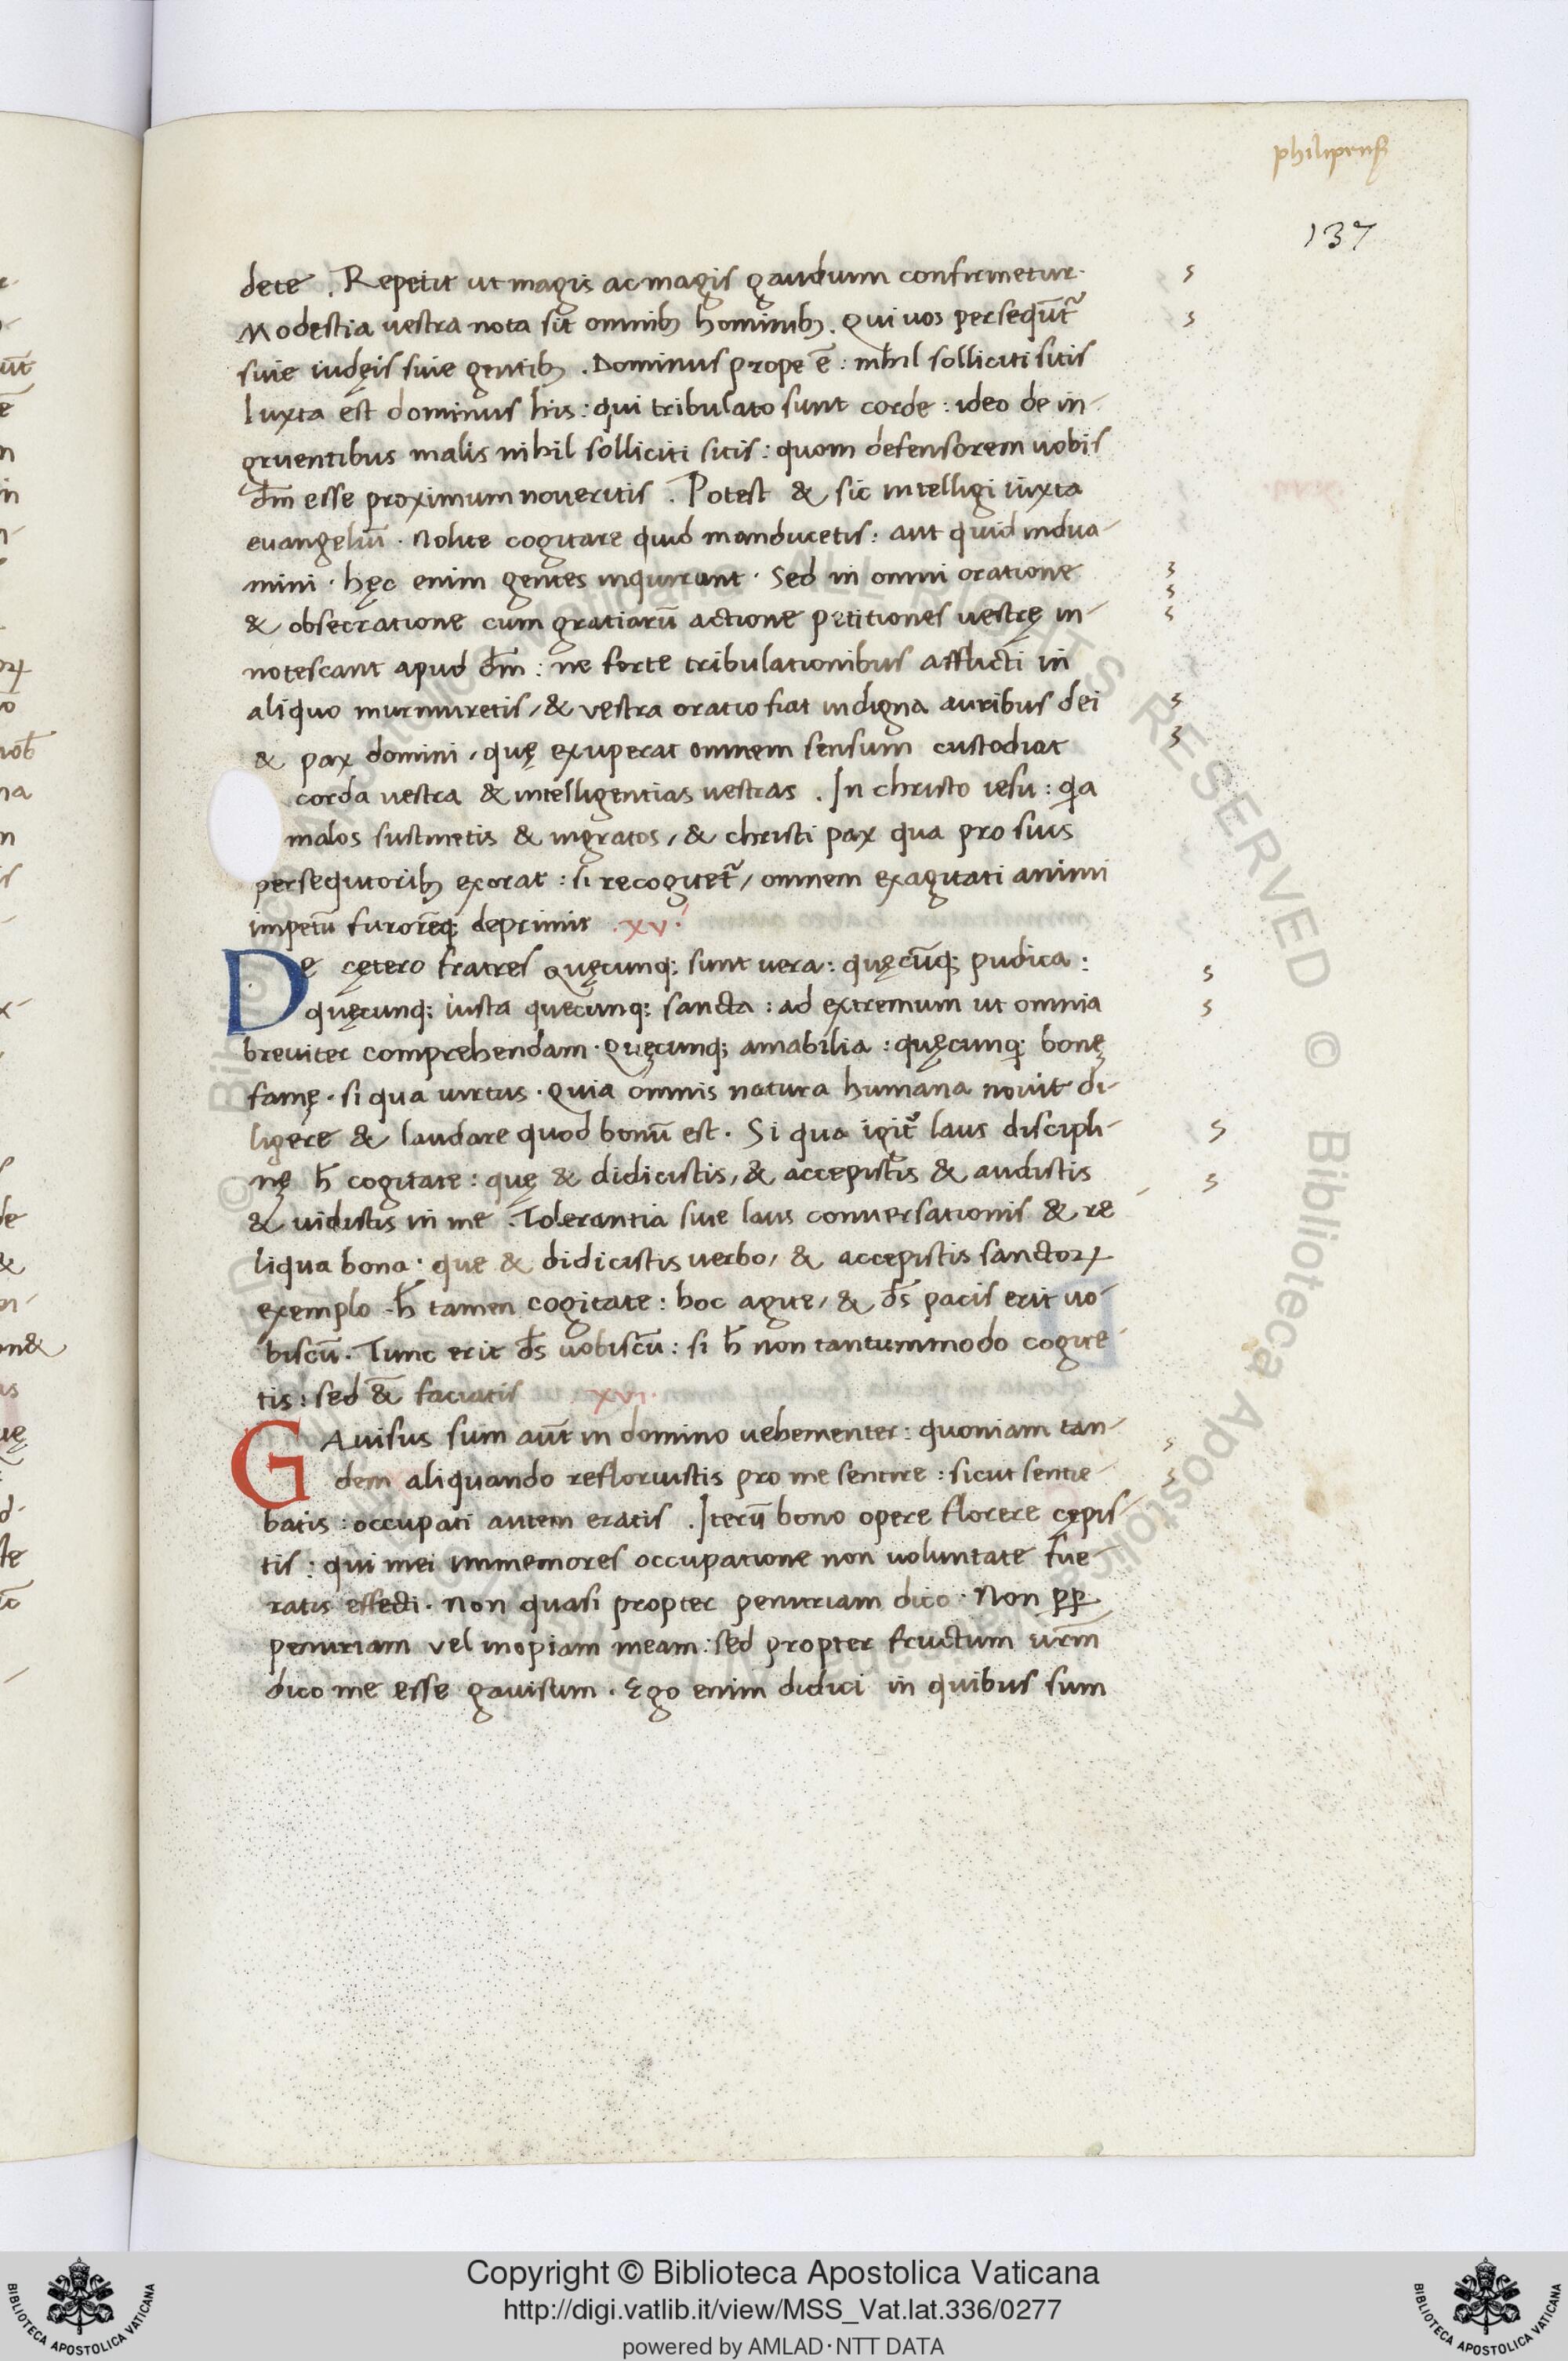 philipens̃
137
dete . Repetit ut magis ac magis gaudium confirmetur.
Modestia vestra nota sit omnib; hominib; . Qui vos persequũt᷑
sive iudęis sive gentib; . Dominus prope ẽ : nihil solliciti sitis
Iuxta est dominus his : qui tribulato sunt corde : ideo de in-
gruentibus malis nihil solliciti sitis : quom defensorem uobis
dm̃ esse proximum noveritis . Potest & sic intelligi iuxta
euangeliũ . Nolite cogitare quid manducetis : aut quid indua-
mini . hęc enim gentes inquirunt . Sed in omni oratione
& obsecratione cum gratiarũ actione petitiones vestrę in-
notescant apud dm̃ : ne forte tribulationibus afflicti in
aliquo murmuretis / & vestra oratio fiat indigna auribus dei
& pax domini / quę exuperat omnem sensum custodiat
corda vestra & intelligentias vestras . In christo iesu : qa
malos sustinetis & ingratos / & christi pax qua pro suis
persequtorib; exorat : si recogitet᷑ / omnem exagitati animi
impetũ furorẽq; deprimit . xv .
De cętero fratres Quęcunq; sunt vera : quęcũq; pudica :
quęcunq; iusta quecunq; sancta : ad extremum ut omnia
breviter comprehendam . Quęcunq; amabilia : quęcunq; bonę
famę . si qua virtus . Quia omnis natura humana novit di-
ligere & laudare quod bonũ est . Si qua igit᷑ laus discipli-
nę h̃ cogitate : quę & didicistis / & accepistis & audistis
& vidistis in me . Tolerantia sive laus conversationis & re
liqua bona . que & didicistis verbo / & accepistis sanctoꝝ
exemplo . h̃ tamen cogitate : hoc agite / & ds̃ pacis erit vo-
biscũ . Tunc erit ds̃ vobiscũ : si h̃ non tantummodo cogite-
tis : sed &̃ faciatis xvi.
GAvisus sum aũt in domino vehementer : quoniam tan-
dem aliquando refloruistis pro me sentire : sicut sentie-
batis : occupati autem eratis . Iterũ bono opere florere cępis-
tis : qui mei immemores occupatione non voluntate fue-
ratis effecti . Non quasi propter penuriam dico . Non ꝓp̱
penuriam vel inopiam meam : sed propter fructum vrm̃
dico me esse gavisum . Ego enim didici in quibus sum
Copyright © Biblioteca Apostolica Vaticana
http://digi.vatlib.it/view/MSS_Vat.lat.336/0277
powered by AMLAD·NTT DATA